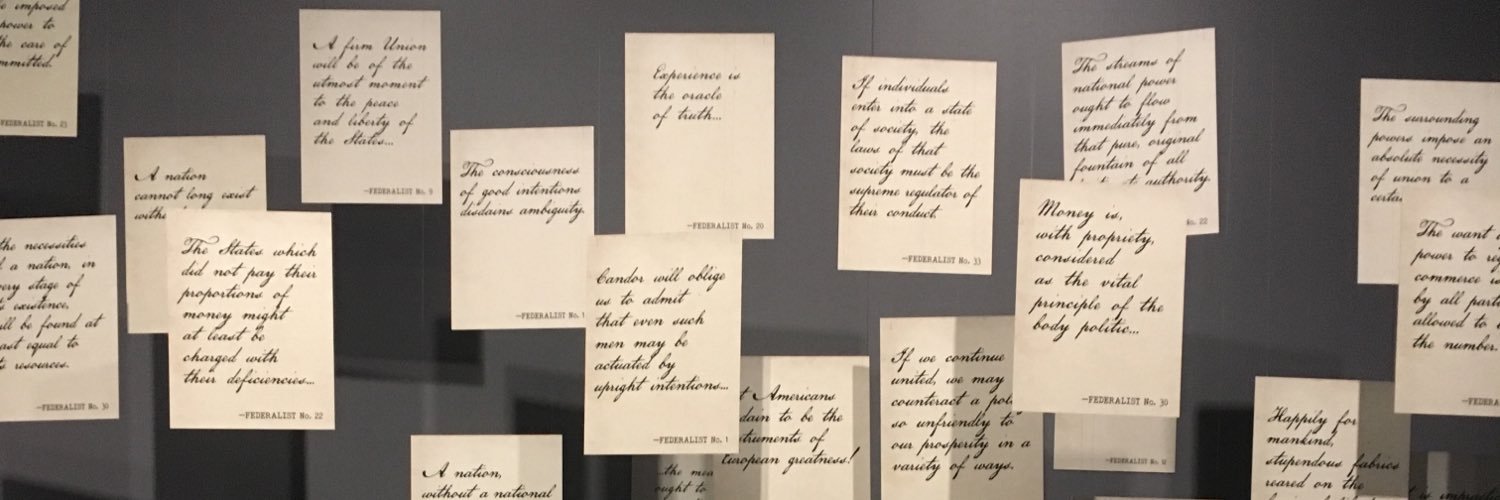 imposed
power to
the care of
mmitted.
FEDERALIST No. 23
A firm Union
will be of the
utmost moment
to the peace
and liberty of
the States...
—FEDERALIST No. 9
A nation
cannot long exist
witho
the necessities
a nation, in
ery stage of
existence,
ll be found at
ast equal to
resources.
—FEDERALIST No. 30
The States which
did not pay their
proportions of
money might
at least be
charged with
their deficiencies...
—FEDERALIST No. 22
The consciousness
of good intentions
disdains ambiguity.
—FEDERALIST No. 1
Experience is
the oracle
of truth...
—FEDERALIST No. 20
Candor will oblige
us to admit
that even such
men may be
actuated by
upright intentions...
—FEDERALIST No. 1
If individuals
enter into a state
of society, the
laws of that
society must be the
supreme regulator of
their conduct.
—FEDERALIST No. 33
The streams of
national power
ought to flow
immediately from
that pure, original
fountain of all
authority.
No. 22
Money is,
with propriety,
considered
as the vital
principle of the
body politic...
—FEDERALIST No. 30
—FEDERALIST No. 12
The surrounding
powers impose an
absolute necessity
of union to a
certa
The want
power to reg
commerce is
by all parti
allowed to
the number.
—FED
A nation,
without a national
the men
ought to
t Americans
dain to be the
struments of
European greatness!
If we continue
united, we may
counteract a pol
so unfriendly to
our prosperity in a
variety of ways.
Happily for
mankind,
stupendous fabrics
reared on the